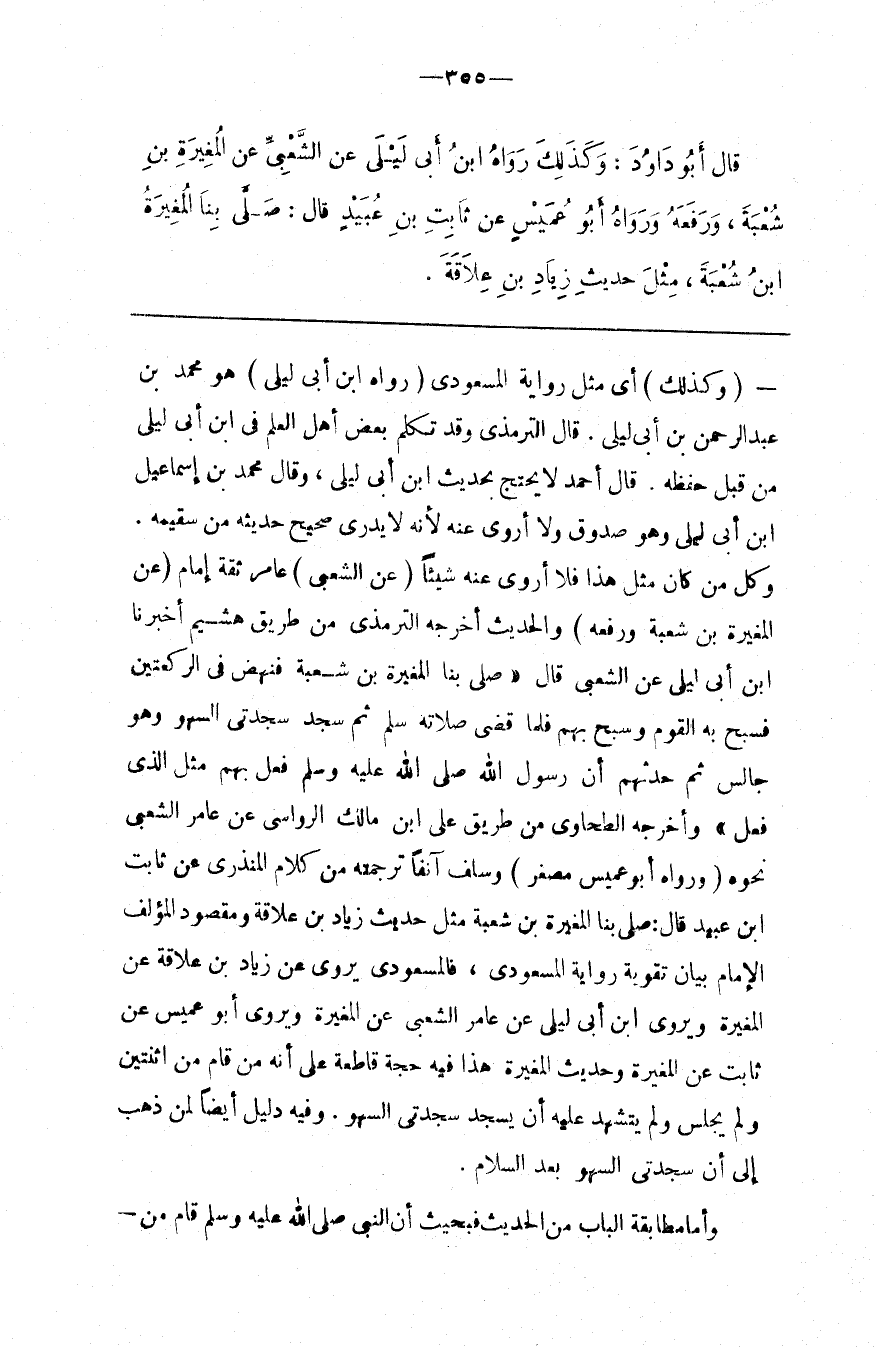 —٣٥٥—
قال أَبُو دَاوُدَ : وَكَذَلِكَ رَوَاهُ ابنُ أَبى لَيْلَى عن الشَّعْبِىِّ عن المُغِيرَةِ بنِ
شُعْبَةَ ، وَرَفَعَهُ وَرَوَاهُ أَبُو عُمَيْسٍ عن ثَابِتِ بنِ عُبَيْدٍ قال : صَلَّى بِنَا المُغِيرَةُ
ابنُ شُعْبَةَ ، مِثْلَ حديثِ زِيَادِ بنِ عِلَاقَةَ .
— ( وكذلك ) أى مثل رواية المسعودى ( رواه ابن أبى ليلى ) هو محمد بن
عبدالرحمن بن أبى ليلى . قال الترمذى وقد تكلم بعض أهل العلم فى ابن أبى ليلى
من قبل حفظه . قال أحمد لا يحتج بحديث ابن أبى ليلى ، وقال محمد بن إسماعيل
ابن أبى ليلى وهو صدوق ولا أروى عنه لأنه لا يدرى صحيح حديثه من سقيمه .
وكل من كان مثل هذا فلا أروى عنه شيئاً ( عن الشعبى ) عامر ثقة إمام ( عن
المغيرة بن شعبة ورفعه ) والحديث أخرجه الترمذى من طريق هشيم أخبرنا
ابن أبى ليلى عن الشعبى قال « صلى بنا المغيرة بن شعبة فنهض فى الركعتين
فسبح به القوم وسبح بهم فلما قضى صلاته سلم ثم سجد سجدتى السهو وهو
جالس ثم حدثهم أن رسول الله صلى الله عليه وسلم فعل بهم مثل الذى
فعل » وأخرجه الطحاوى من طريق على ابن مالك الرواسى عن عامر الشعبى
نحوه ( ورواه أبو عميس مصغر ) وسلف آنفاً ترجمته من كلام المنذرى عن ثابت
ابن عبيد قال : صلى بنا المغيرة بن شعبة مثل حديث زياد بن علاقة ومقصود المؤلف
الإمام بيان تقوية رواية المسعودى ، فالمسعودى يروى عن زياد بن علاقة عن
المغيرة ويروى ابن أبى ليلى عن عامر الشعبى عن المغيرة ويروى أبو عميس عن
ثابت عن المغيرة وحديث المغيرة هذا فيه حجة قاطعة على أنه من قام من اثنتين
ولم يجلس ولم يتشهد عليه أن يسجد سجدتى السهو . وفيه دليل أيضاً لمن ذهب
إلى أن سجدتى السهو بعد السلام .
وأما مطابقة الباب من الحديث فبحيث أن النبى صلى الله عليه وسلم قام من —